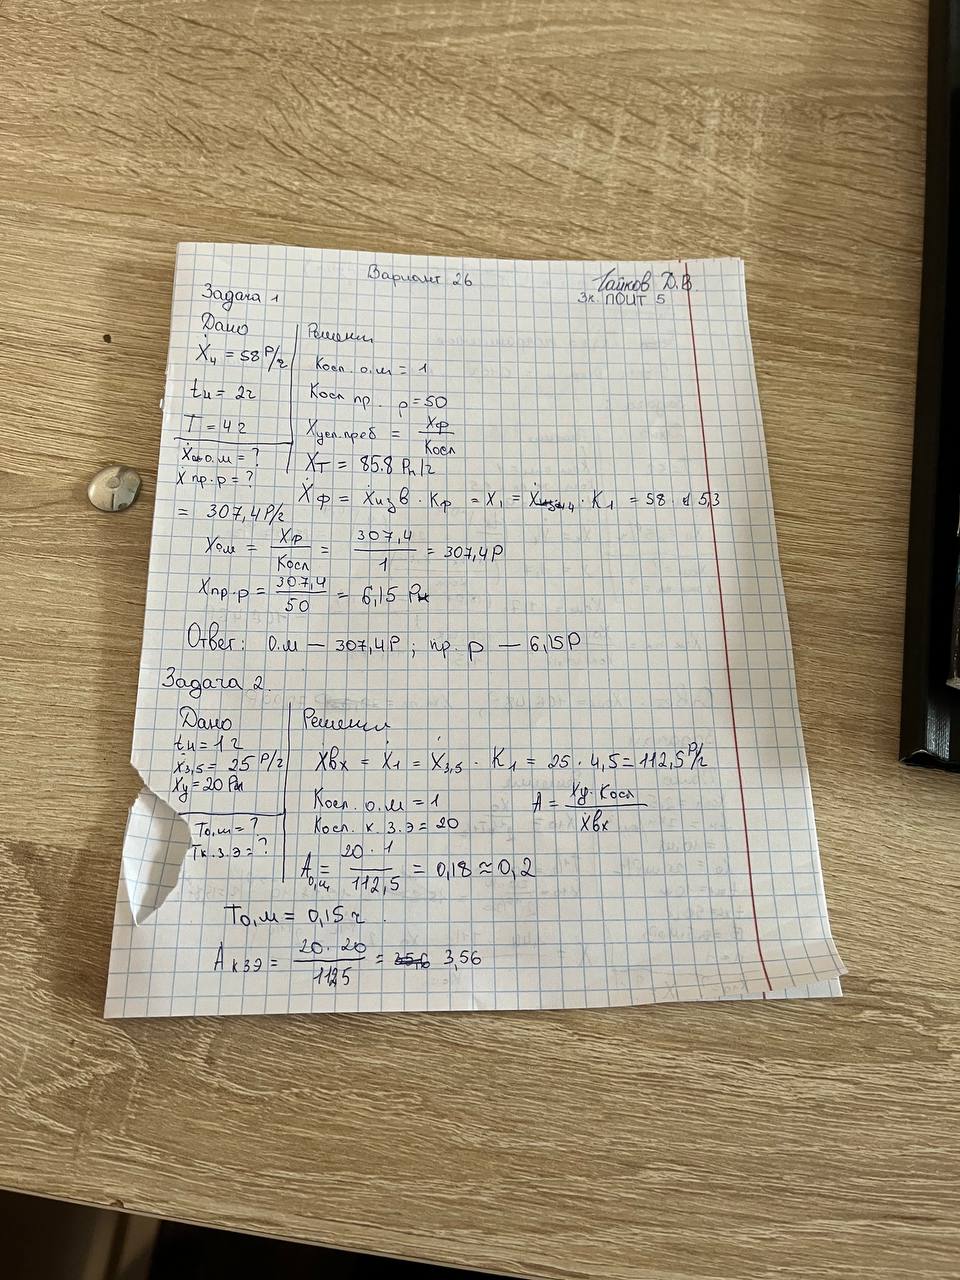 Вариант 26
Чайков Д.В.
Зк. ПОИТ 5
Задача 1
Дано
Ẋ₄ = 58 Р/г
tи = 2г
T = 4 г
о.м = ?
Ẋ пр.р = ?
Решение
Косл. о.м = 1
Косл пр. р = 50
Хусл.преб = Хф / Косл
Хт = 85.8 Рп/г
Ẋф = Ẋизв · Кр = Х₁ = Ẋ · К₁ = 58 · 5,3
= 307,4 Р/г
Хом = Хр / Косл = 307,4 / 1 = 307,4 Р
Хпр.р = 307,4 / 50 = 6,15 Р
Ответ: о.м — 307,4 Р ; пр. р — 6,15 Р
Задача 2.
Дано
tн = 1 г
Ẋ3,5 = 25 Р/г
Ху = 20 Рп
То,м = ?
Тк.з.э = ?
Решение
Хвх = Ẋ₁ = Ẋ3,5 · К₁ = 25 · 4,5 = 112,5 Р/г
Косл. о.м = 1
A = Ху · Косл / Ẋвх
Косл. к. з. э = 20
Aо,м = 20 · 1 / 112,5 = 0,18 ≈ 0,2
То,м = 0,15 г.
А кзэ = 20 · 20 / 112,5 = 3,56